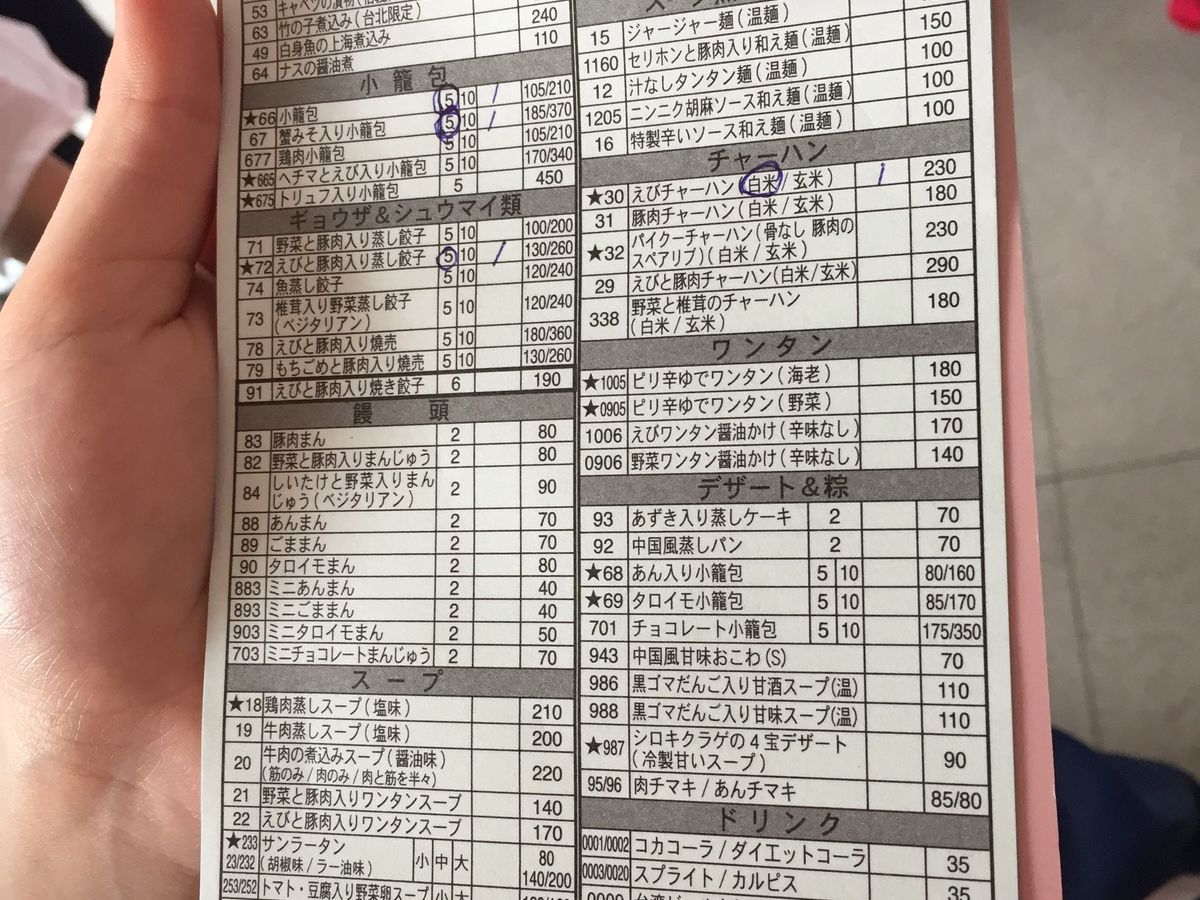 53 キャベツの漬物
63 竹の子煮込み(台北限定)
49 白身魚の上海煮込み 240
64 ナスの醤油煮 110
小籠包
★66 小籠包 5 10 / 105/210
67 蟹みそ入り小籠包 5 10 / 185/370
677 鶏肉小籠包 5 10 105/210
★665 ヘチマとえび入り小籠包 5 10 170/340
★675 トリュフ入り小籠包 5 450
ギョウザ&シュウマイ類
71 野菜と豚肉入り蒸し餃子 5 10 100/200
★72 えびと豚肉入り蒸し餃子 5 10 / 130/260
74 魚蒸し餃子 5 10 120/240
73 椎茸入り野菜蒸し餃子 5 10 120/240
(ベジタリアン)
78 えびと豚肉入り焼売 5 10 180/360
79 もちごめと豚肉入り焼売 5 10 130/260
91 えびと豚肉入り焼き餃子 6 190
饅頭
83 豚肉まん 2 80
82 野菜と豚肉入りまんじゅう 2 80
84 しいたけと野菜入りまん 2 90
じゅう(ベジタリアン)
88 あんまん 2 70
89 ごままん 2 70
90 タロイモまん 2 80
883 ミニあんまん 2 40
893 ミニごままん 2 40
903 ミニタロイモまん 2 50
703 ミニチョコレートまんじゅう 2 70
スープ
★18 鶏肉蒸しスープ(塩味) 210
19 牛肉蒸しスープ(塩味) 200
20 牛肉の煮込みスープ(醤油味) 220
(筋のみ/肉のみ/肉と筋を半々)
21 野菜と豚肉入りワンタンスープ 140
22 えびと豚肉入りワンタンスープ 170
★233 サンラータン 小 中 大 80
23/232 (胡椒味/ラー油味) 140/200
253/252 トマト・豆腐入り野菜卵スープ 小 大
15 ジャージャー麺(温麺)
1160 セリホンと豚肉入り和え麺(温麺) 150
12 汁なしタンタン麺(温麺) 100
1205 ニンニク胡麻ソース和え麺(温麺) 100
16 特製辛いソース和え麺(温麺) 100
チャーハン
★30 えびチャーハン(白米/玄米) / 230
31 豚肉チャーハン(白米/玄米) 180
★32 パイクーチャーハン(骨なし 豚肉の 230
スペアリブ)(白米/玄米)
29 えびと豚肉チャーハン(白米/玄米) 290
338 野菜と椎茸のチャーハン 180
(白米/玄米)
ワンタン
★1005 ピリ辛ゆでワンタン(海老) 180
★0905 ピリ辛ゆでワンタン(野菜) 150
1006 えびワンタン醤油かけ(辛味なし) 170
0906 野菜ワンタン醤油かけ(辛味なし) 140
デザート&粽
93 あずき入り蒸しケーキ 2 70
92 中国風蒸しパン 2 70
★68 あん入り小籠包 5 10 80/160
★69 タロイモ小籠包 5 10 85/170
701 チョコレート小籠包 5 10 175/350
943 中国風甘味おこわ(S) 70
986 黒ゴマだんご入り甘酒スープ(温) 110
988 黒ゴマだんご入り甘味スープ(温) 110
★987 シロキクラゲの4宝デザート 90
(冷製甘いスープ)
95/96 肉チマキ/あんチマキ 85/80
ドリンク
0001/0002 コカコーラ/ダイエットコーラ 35
0003/0020 スプライト/カルピス 35